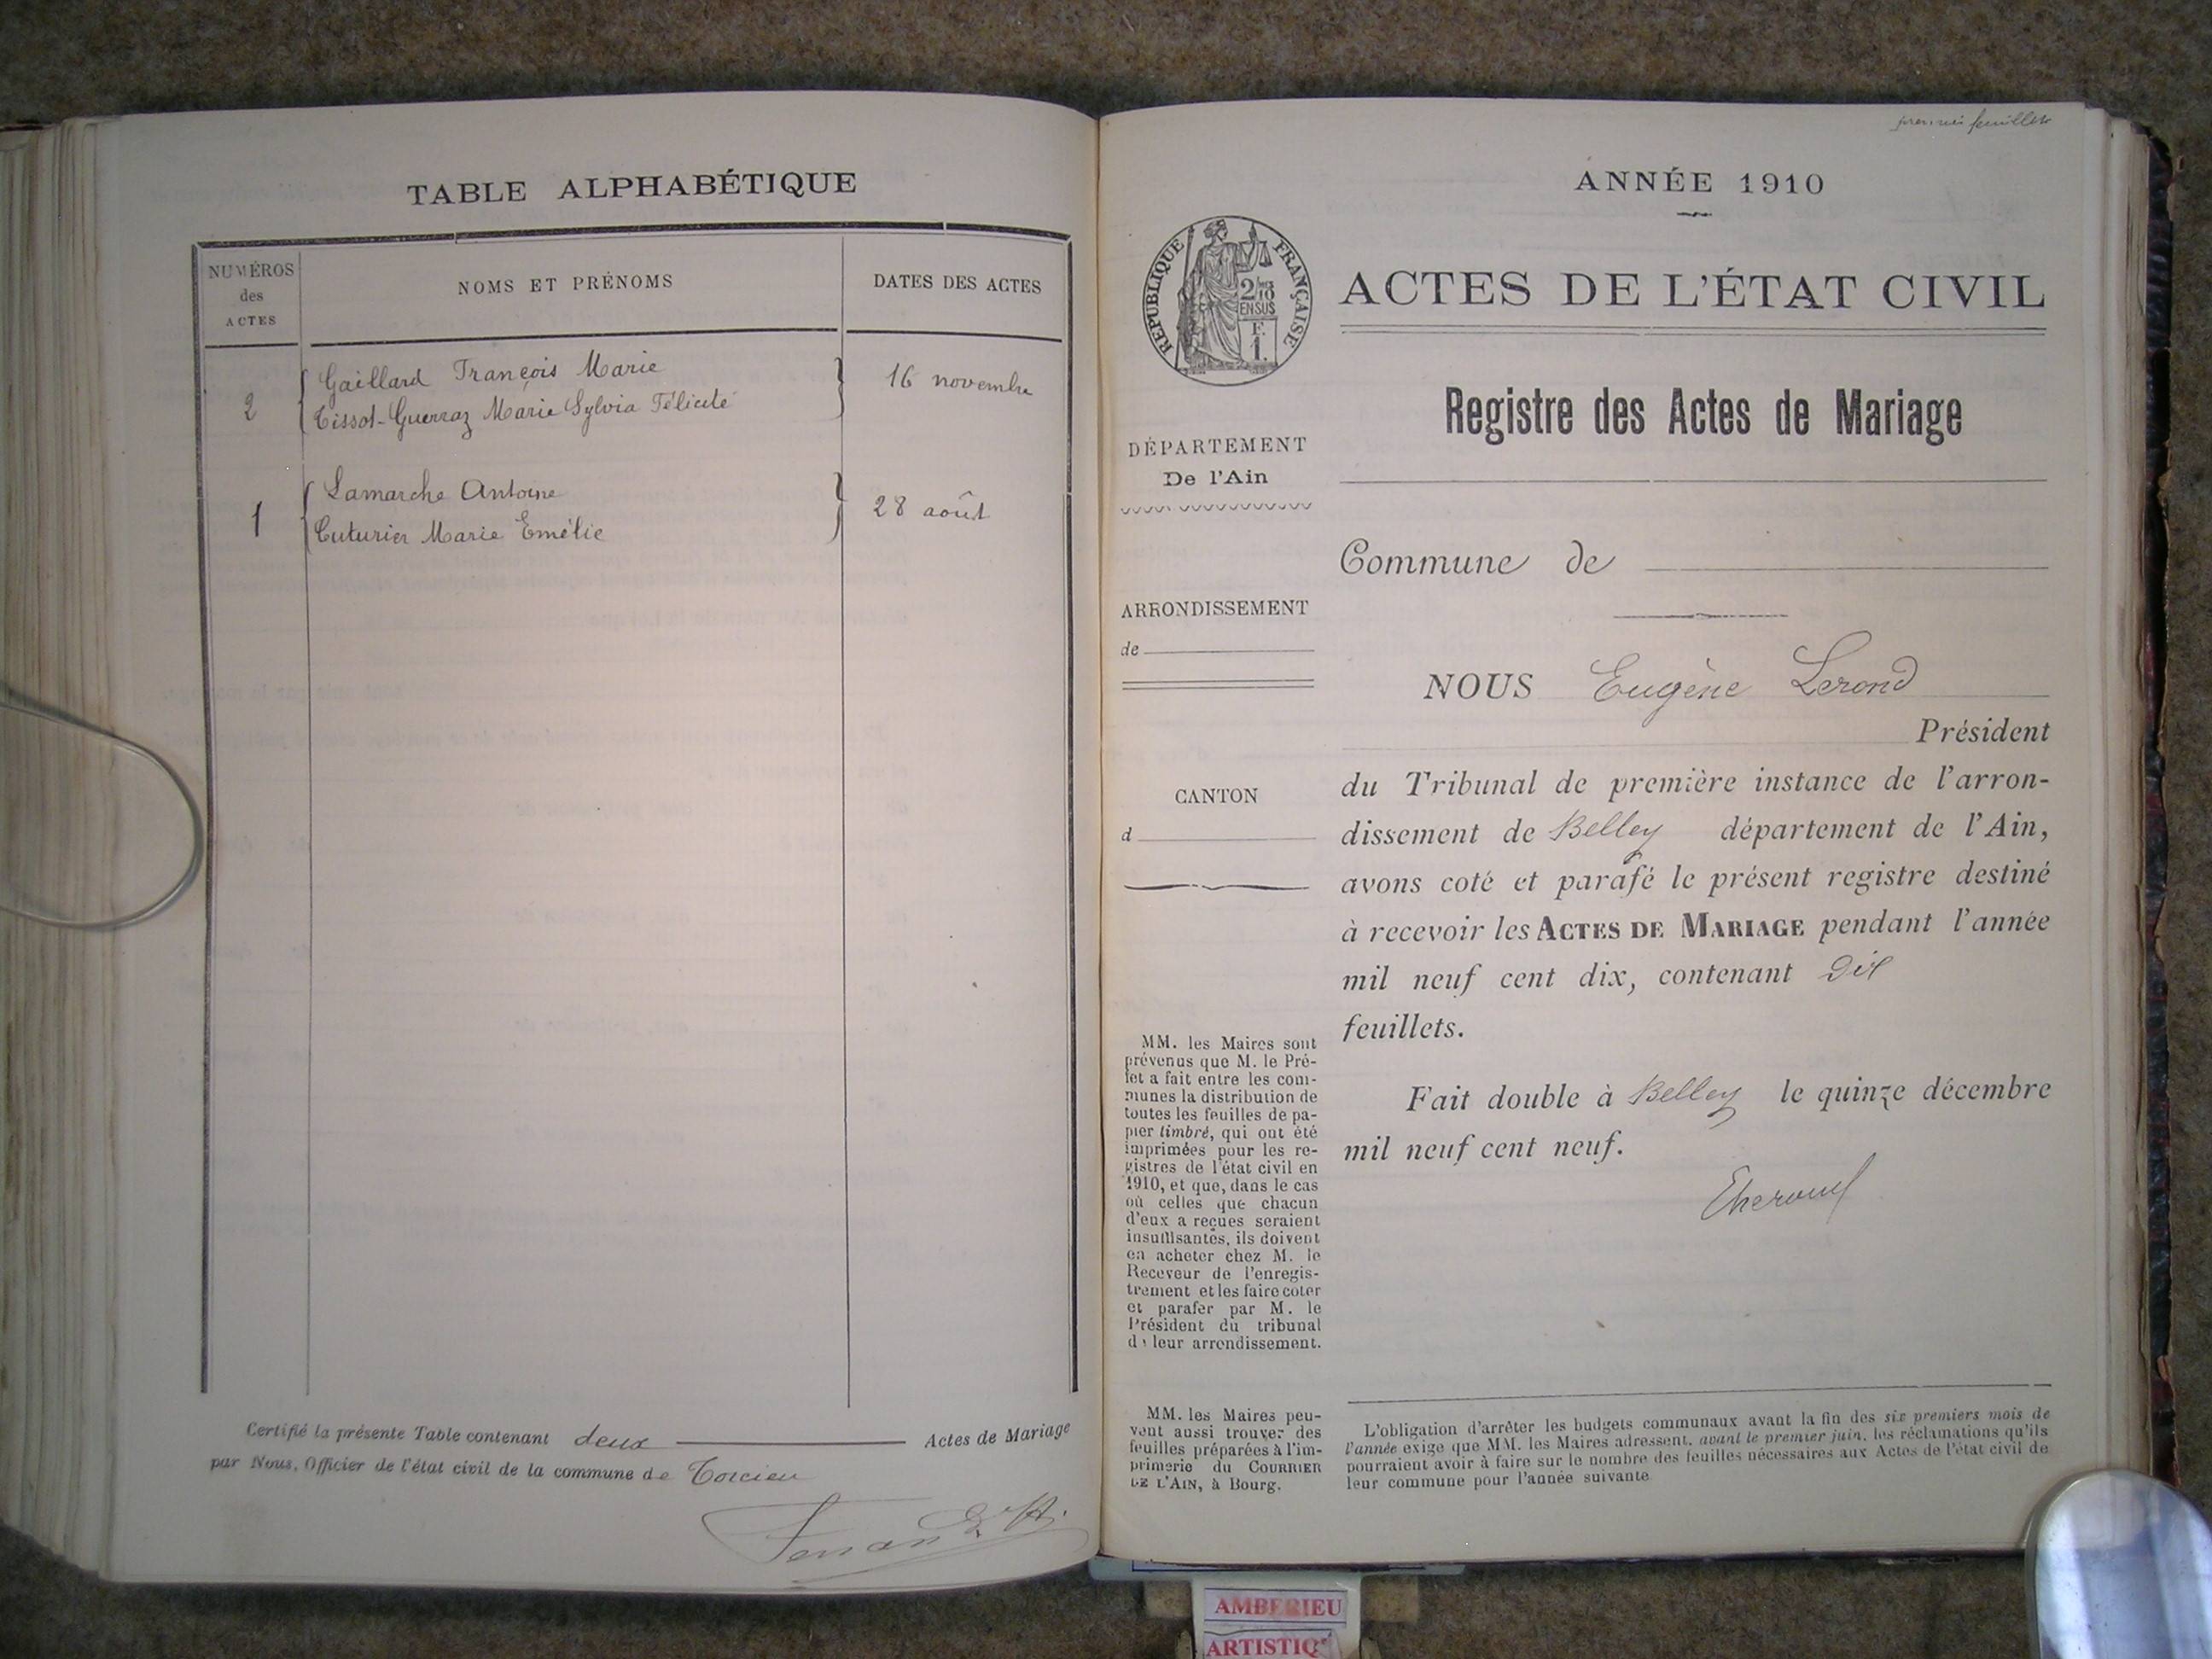 TABLE ALPHABÉTIQUE
NUMÉROS
des
ACTES
NOMS ET PRÉNOMS
DATES DES ACTES
2
Gaillard François Marie
Tissot-Guerraz Marie Sylvia Félicité
16 novembre
1
Lamarche Antoine
Cuturier Marie Emélie
28 août
Certifié la présente Table contenant deux Actes de Mariage
par Nous, Officier de l'état civil de la commune de Torcieu
premier feuillet
ANNÉE 1910
RÉPUBLIQUE FRANÇAISE
2/10
EN SUS
F.
1.
ACTES DE L'ÉTAT CIVIL
Registre des Actes de Mariage
DÉPARTEMENT
De l'Ain
Commune de
ARRONDISSEMENT
de
NOUS Eugène Lerond
Président
CANTON
d
du Tribunal de première instance de l'arron-
dissement de Belley département de l'Ain,
avons coté et parafé le présent registre destiné
à recevoir les ACTES DE MARIAGE pendant l'année
mil neuf cent dix, contenant Dix
feuillets.
Fait double à Belley le quinze décembre
mil neuf cent neuf.
MM. les Maires sont
prévenus que M. le Pré-
fet a fait entre les com-
munes la distribution de
toutes les feuilles de pa-
pier timbré, qui ont été
imprimées pour les re-
gistres de l'état civil en
1910, et que, dans le cas
où celles que chacun
d'eux a reçues seraient
insuffisantes, ils doivent
en acheter chez M. le
Receveur de l'enregis-
trement et les faire coter
et parafer par M. le
Président du tribunal
de leur arrondissement.
MM. les Maires peu-
vent aussi trouver des
feuilles préparées à l'im-
primerie du COURRIER
DE L'AIN, à Bourg.
L'obligation d'arrêter les budgets communaux avant la fin des six premiers mois de
l'année exige que MM. les Maires adressent, avant le premier juin, les réclamations qu'ils
pourraient avoir à faire sur le nombre des feuilles nécessaires aux Actes de l'état civil de
leur commune pour l'année suivante
AMBERIEU
ARTISTIQ